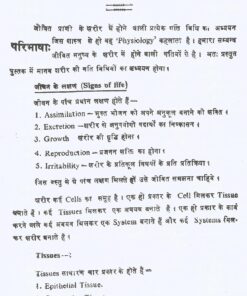 जीवित प्राणी के शरीर में होने वाली प्रत्येक गति विधि का अध्ययन
परिभाषाः
जिस शास्त्र में हो वह 'Physiology' कहलाता है । हमारा सम्बन्ध
जीवित मनुष्य के शरीर में होने वाली गतियों से है । अतः प्रस्तुत
पुस्तक में मानव शरीर की गति विधियों का अध्ययन होगा।
जीवन के लक्षण (Signs of life)
जीवन के पांच प्रधान लक्षण होते हैं—
1. Assimilation - भुक्त भोजन को अपने अनुकूल बनाने की शक्ति ।
2. Excretion -शरीर से अनुपयोगी पदार्थों का निष्कासन ।
3. Growth शरीर की वृद्धि होना ।
4. Reproduction - प्रजनन शक्ति का होना ।
5. Irritability - शरीर के प्रतिकूल विषयों के प्रति प्रतिक्रिया ।
जिस वस्तु में ये पांच लक्षण मिलते हों उसे जीवित समझना चाहिये ।
शरीर कई Cells का समूह है । एक ही प्रकार के Cell मिलकर Tissue
बनाते हैं । कई Tissues मिलकर एक अवयव बनाते है । एक ही प्रकार के कार्य
करने वाले कई अवयव मिलकर एक System बनाते हैं और कई Systems मिल-
कर शरीर बनाते है ।
Tissues --:
Tissues साधारणतः चार प्रकार के होते हैं ।
1. Epithetial Tissue.